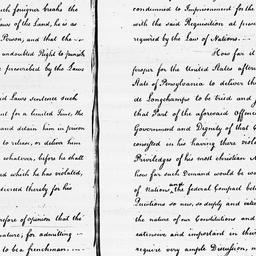 such foreigner breaks the
Laws of the Land, he is as
Person, and that the
undoubted Right to punish
prescribed by the Laws
said Laws sentence such
but for a limited Time, the
and detain him in prison
to release, or deliver him
whatever, before he shall
which he has violated,
decreed thereby for his
therefore of opinion that the
nature; for admitting
to be a frenchman
condemned to Imprisonment for the
with the said Requisition at pres
required by the Law of Nations.
How far it
proper for the United States after
State of Pennsylvania to deliver th
de Longchamps to be tried and p
that Part of the aforesaid Offence
Government and Dignity of that
consisted in his having there viola
Priviledges of his most christian M
how far such Demand would be wa
of Nations, and the federal Compact betwee
Questions so new, so deeply and inter
the nature of our Constitutions and
extensive and important in their
require very ample Discussion, n